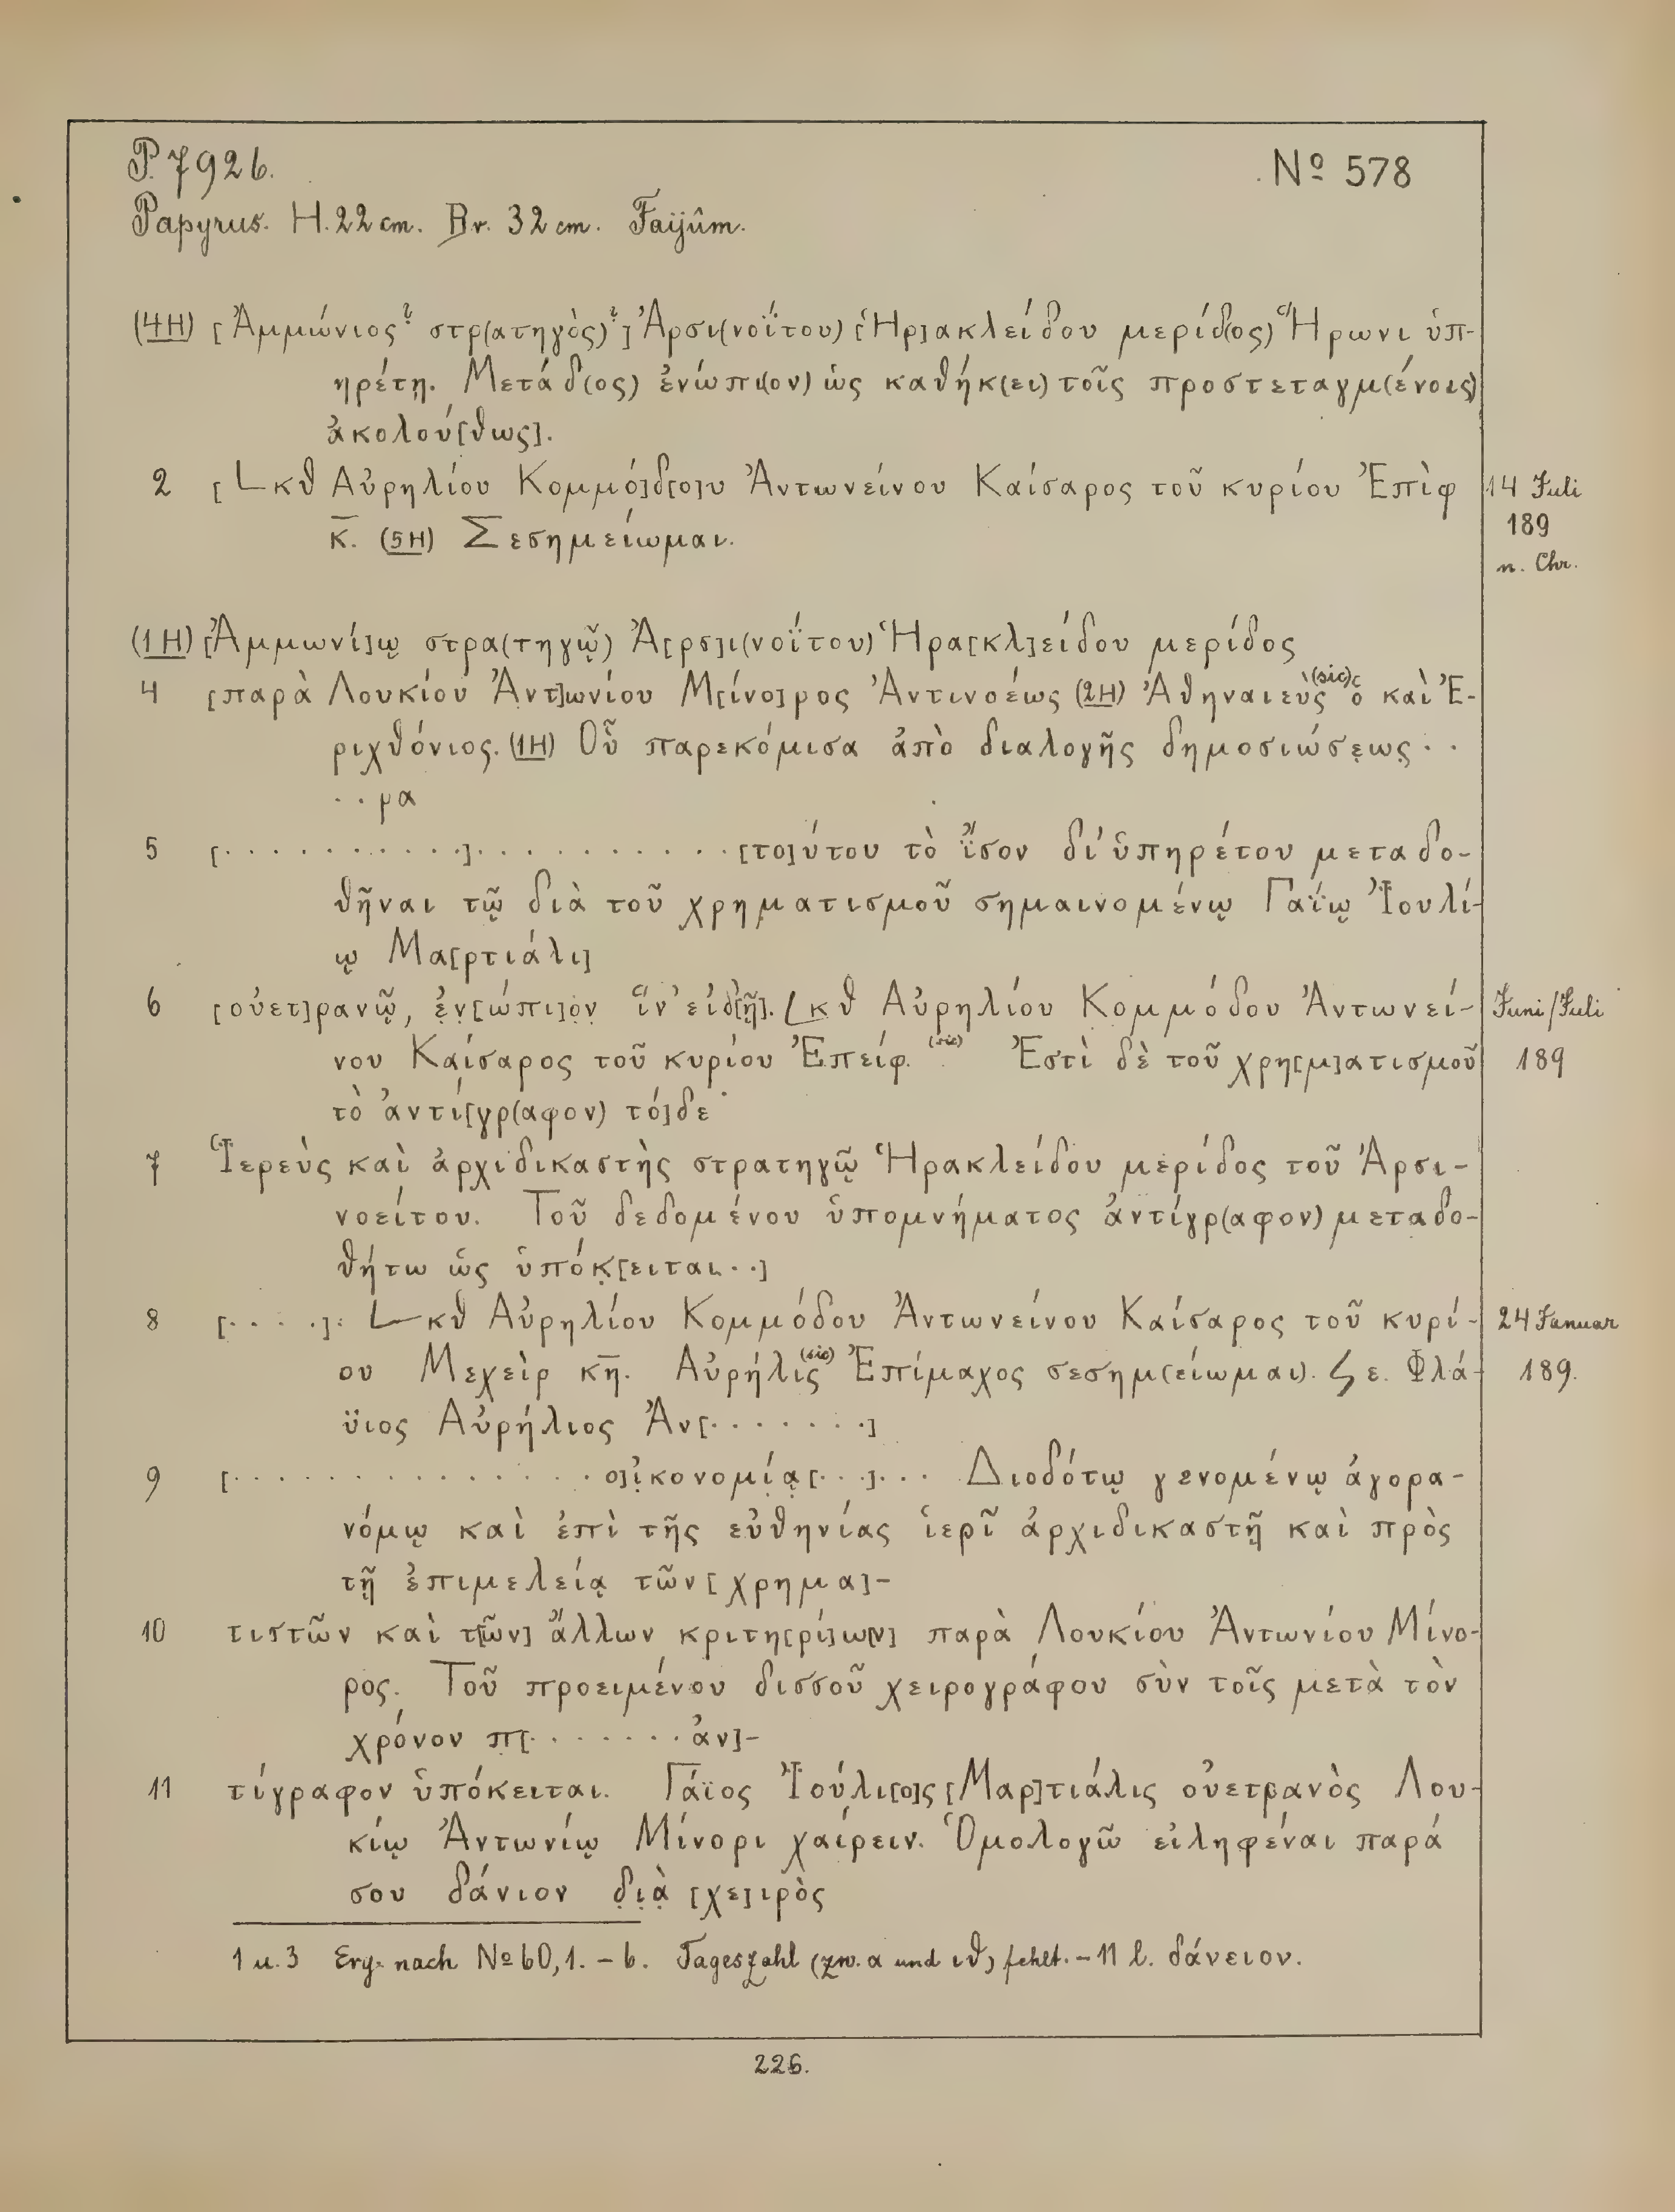 P. 7926. № 578
Papyrus. H. 22 cm. Br. 32 cm. Faijûm.
(4H) [Ἀμμώνιος? στρ(ατηγὸς)?] Ἀρσι(νοΐτου) [Ἡρ]ακλείδου μερίδ(ος) Ἥρωνι ὑπ-
ηρέτῃ. Μετάδ(ος) ἐνώπι(ον) ὡς καθήκ(ει) τοῖς προστεταγμ(ένοις)
ἀκολού[θως].
2 [Lκθ Αὐρηλίου Κομμό]δ[ο]υ Ἀντωνείνου Καίσαρος τοῦ κυρίου Ἐπὶφ 14 Juli
κ̅. (5H) Σεσημείωμαι. 189
n. Chr.
(1H) [Ἀμμωνί]ῳ στρα(τηγῷ) Ἀ[ρσ]ι(νοΐτου) Ἡρα[κλ]είδου μερίδος
4 [παρὰ Λουκίου Ἀντ]ωνίου Μ[ίνο]ρος Ἀντινοέως (2H) Ἀθηναιεὺς (sic) ὁ καὶ Ἐ-
ριχθόνιος. (1H) Οὗ παρεκόμισα ἀπὸ διαλογῆς δημοσιώσε̣ως̣ . .
. . ρα
5 [. . . . . . . . . . .] . . . . . . . . . . . [το]ύτου τὸ ἴσον δι' ὑπηρέτου μεταδο-
θῆναι τῷ διὰ τοῦ χρηματισμοῦ σημαινομένῳ Γαΐῳ Ἰουλί-
ῳ Μα[ρτιάλι]
6 [οὐετ]ρανῷ, ἐ̣ν̣[ώπι]ο̣ν̣ ἵν' εἰδ[ῇ]. Lκθ Αὐρηλίου Κομμόδου Ἀντωνεί- Juni/Juli
νου Καίσαρος τοῦ κυρίου Ἐπείφ. (sic) Ἐστὶ δὲ τοῦ χρη[μ]ατισμοῦ 189
τὸ ἀντί[γρ(αφον) τό]δε·
7 Ἱερεὺς καὶ ἀρχιδικαστὴς στρατηγῷ Ἡρακλείδου μερίδος τοῦ Ἀρσι-
νοείτου. Τοῦ δεδομένου ὑπομνήματος ἀντίγρ(αφον) μεταδο-
θήτω ὡς ὑπόκ̣[ειται . .]
8 [. . . .]: Lκθ Αὐρηλίου Κομμόδου Ἀντωνείνου Καίσαρος τοῦ κυρί- 24 Januar
ου Μεχεὶρ κη̅. Αὐρήλις (sic) Ἐπίμαχος σεσημ(είωμαι). ς ε. Φλά- 189.
ϋιος Αὐρήλιος Ἀν[. . . . . . . .]
9 [. . . . . . . . . . . . . . . ο]ἰ̣κονομία̣[. . .] . . . Διοδότῳ γενομένῳ ἀγορα-
νόμῳ καὶ ἐπὶ τῆς εὐθηνίας ἱερῖ ἀρχιδικαστῇ καὶ πρὸς
τῇ ἐπιμελείᾳ τῶν [χρημα]-
10 τιστῶν καὶ τ[ῶν] ἄλλων κριτη[ρί]ω[ν] παρὰ Λουκίου Ἀντωνίου Μίνο-
ρος. Τοῦ προειμένου δισσοῦ χειρογράφου σὺν τοῖς μετὰ τὸν
χρόνον π[. . . . . . . . ἀν]-
11 τίγραφον ὑπόκειται. Γάϊος Ἰούλι[ο]ς [Μαρ]τιάλις οὐετρανὸς Λου-
κίῳ Ἀντωνίῳ Μίνορι χαίρειν. Ὁμολογῶ εἰληφέναι παρά
σου δάνιον δ̣ι̣ὰ̣ [χε]ιρὸς
1 u. 3 Erg. nach № 60, 1. – 6. Tageszahl (zw. α und ιθ) fehlt. – 11 l. δάνειον.
226.